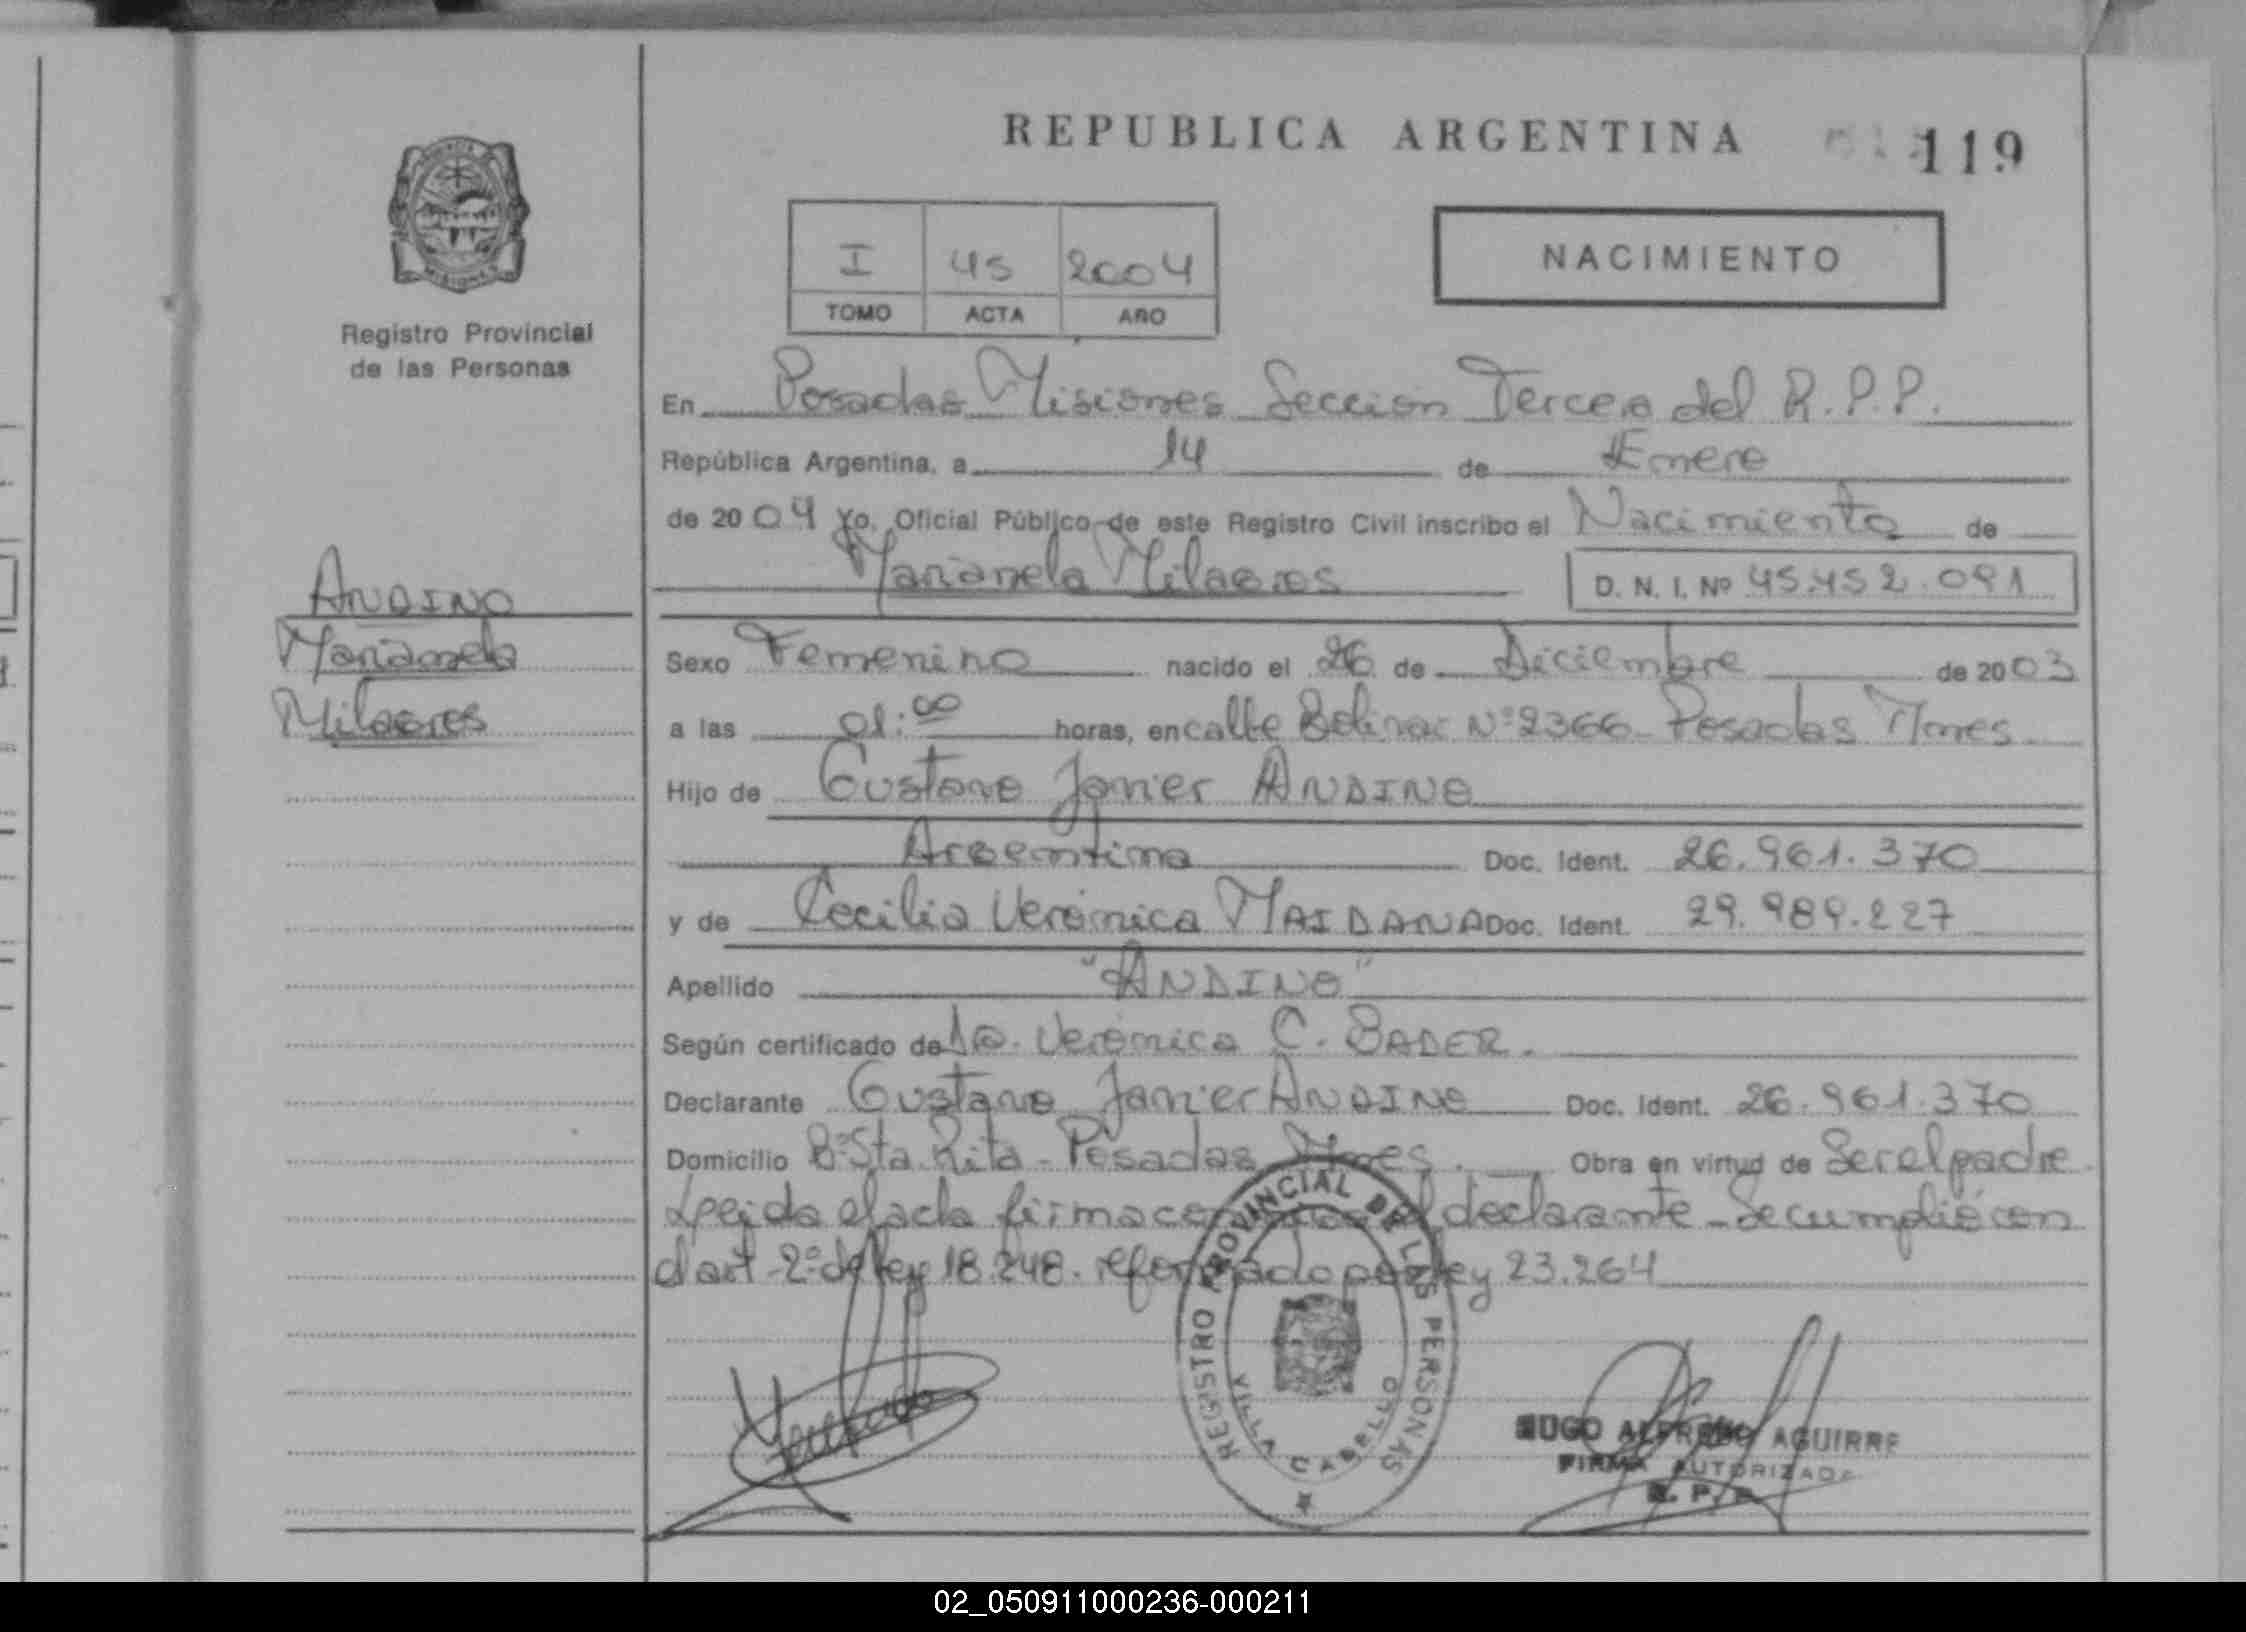 REPUBLICA ARGENTINA
119
I 45 2004
TOMO ACTA AÑO
NACIMIENTO
Registro Provincial
de las Personas
En Posadas Misiones Sección Tercera del R.P.P.
República Argentina, a 14 de Enero
de 2004 Yo, Oficial Público de este Registro Civil inscribo el Nacimiento de
Marianela Milagros D. N. I. Nº 45.452.091
ANDINO
Marianela
Milagros
Sexo Femenino nacido el 26 de Diciembre de 2003
a las 01:00 horas, en calle Bolivar Nº 2366 - Posadas Mnes.
Hijo de Gustavo Javier ANDINO
Argentina Doc. Ident. 26.961.370
y de Cecilia Verónica MAIDANA Doc. Ident. 29.989.227
Apellido "ANDINO"
Según certificado de Dra. Verónica C. BADER.
Declarante Gustavo Javier ANDINO Doc. Ident. 26.961.370
Domicilio Bº Sta. Rita - Posadas Mnes. Obra en virtud de Ser el padre.
Leida el acta firma conmigo el declarante - Se cumplió con
el art. 2º de ley 18.248. reformado por ley 23.264
REGISTRO PROVINCIAL DE LAS PERSONAS
VILLA CABELLO
HUGO ALFREDO AGUIRRE
FIRMA AUTORIZADA
R. P. P.
02_050911000236-000211